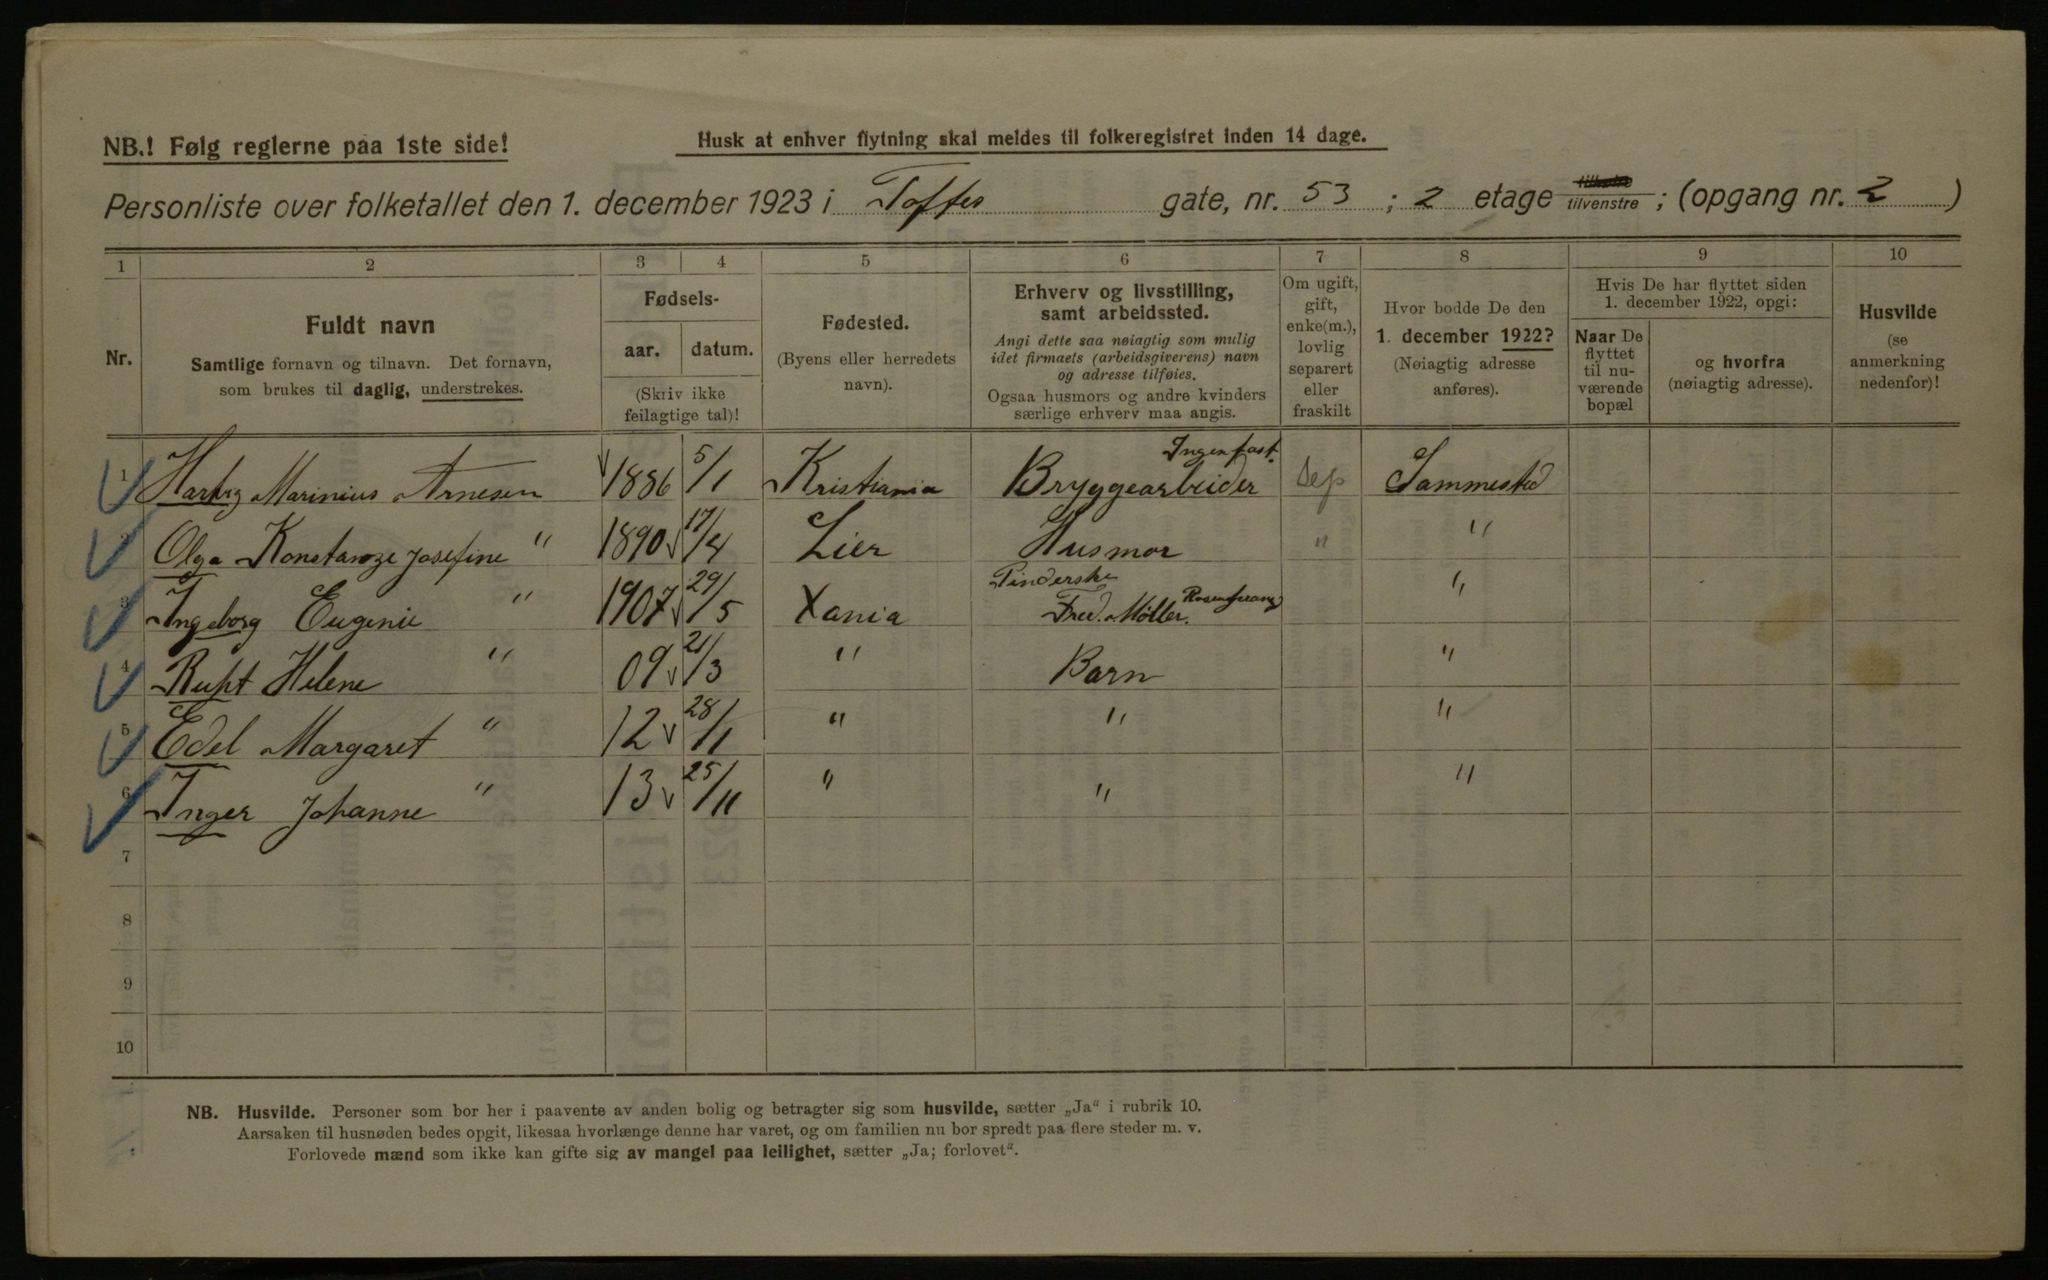 NB.! Følg reglerne paa 1ste side!
Husk at enhver flytning skal meldes til folkeregistret inden 14 dage.
Personliste over folketallet den 1. december 1923 i Toftes gate, nr. 53 ; 2 etage tilhøire tilvenstre ; (opgang nr. 2 )
1 2 3 4 5 6 7 8 9 10
Nr.
Fuldt navn
Samtlige fornavn og tilnavn. Det fornavn,
som brukes til daglig, understrekes.
Fødsels-
aar. datum.
(Skriv ikke
feilagtige tal)!
Fødested.
(Byens eller herredets
navn).
Erhverv og livsstilling,
samt arbeidssted.
Angi dette saa nøiagtig som mulig
idet firmaets (arbeidsgiverens) navn
og adresse tilføies.
Ogsaa husmors og andre kvinders
særlige erhverv maa angis.
Om ugift,
gift,
enke(m.),
lovlig
separert
eller
fraskilt
Hvor bodde De den
1. december 1922?
(Nøiagtig adresse
anføres).
Hvis De har flyttet siden
1. december 1922, opgi:
Naar De
flyttet
til nu-
værende
bopæl
og hvorfra
(nøiagtig adresse).
Husvilde
(se
anmerkning
nedenfor)!
Ingen fast.
1 Hartvig Marinius Arnesen 1886 5/1 Kristiania Bryggearbeider Sep Sammested
2 Olga Konstanze Josefine " 1890 17/4 Lier Husmor " "
3 Ingeborg Eugenie " 1907 29/5 Xania Fred. Møller. "
4 Ruht Helene " 09 21/3 " Barn "
5 Edel Margaret " 12 28/1 " " "
6 Inger Johanne " 13 25/11 " " "
7
8
9
10
NB. Husvilde. Personer som bor her i paavente av anden bolig og betragter sig som husvilde, sætter „Ja“ i rubrik 10.
Aarsaken til husnøden bedes opgit, likesaa hvorlænge denne har varet, og om familien nu bor spredt paa flere steder m. v.
Forlovede mænd som ikke kan gifte sig av mangel paa leilighet, sætter „Ja; forlovet“.